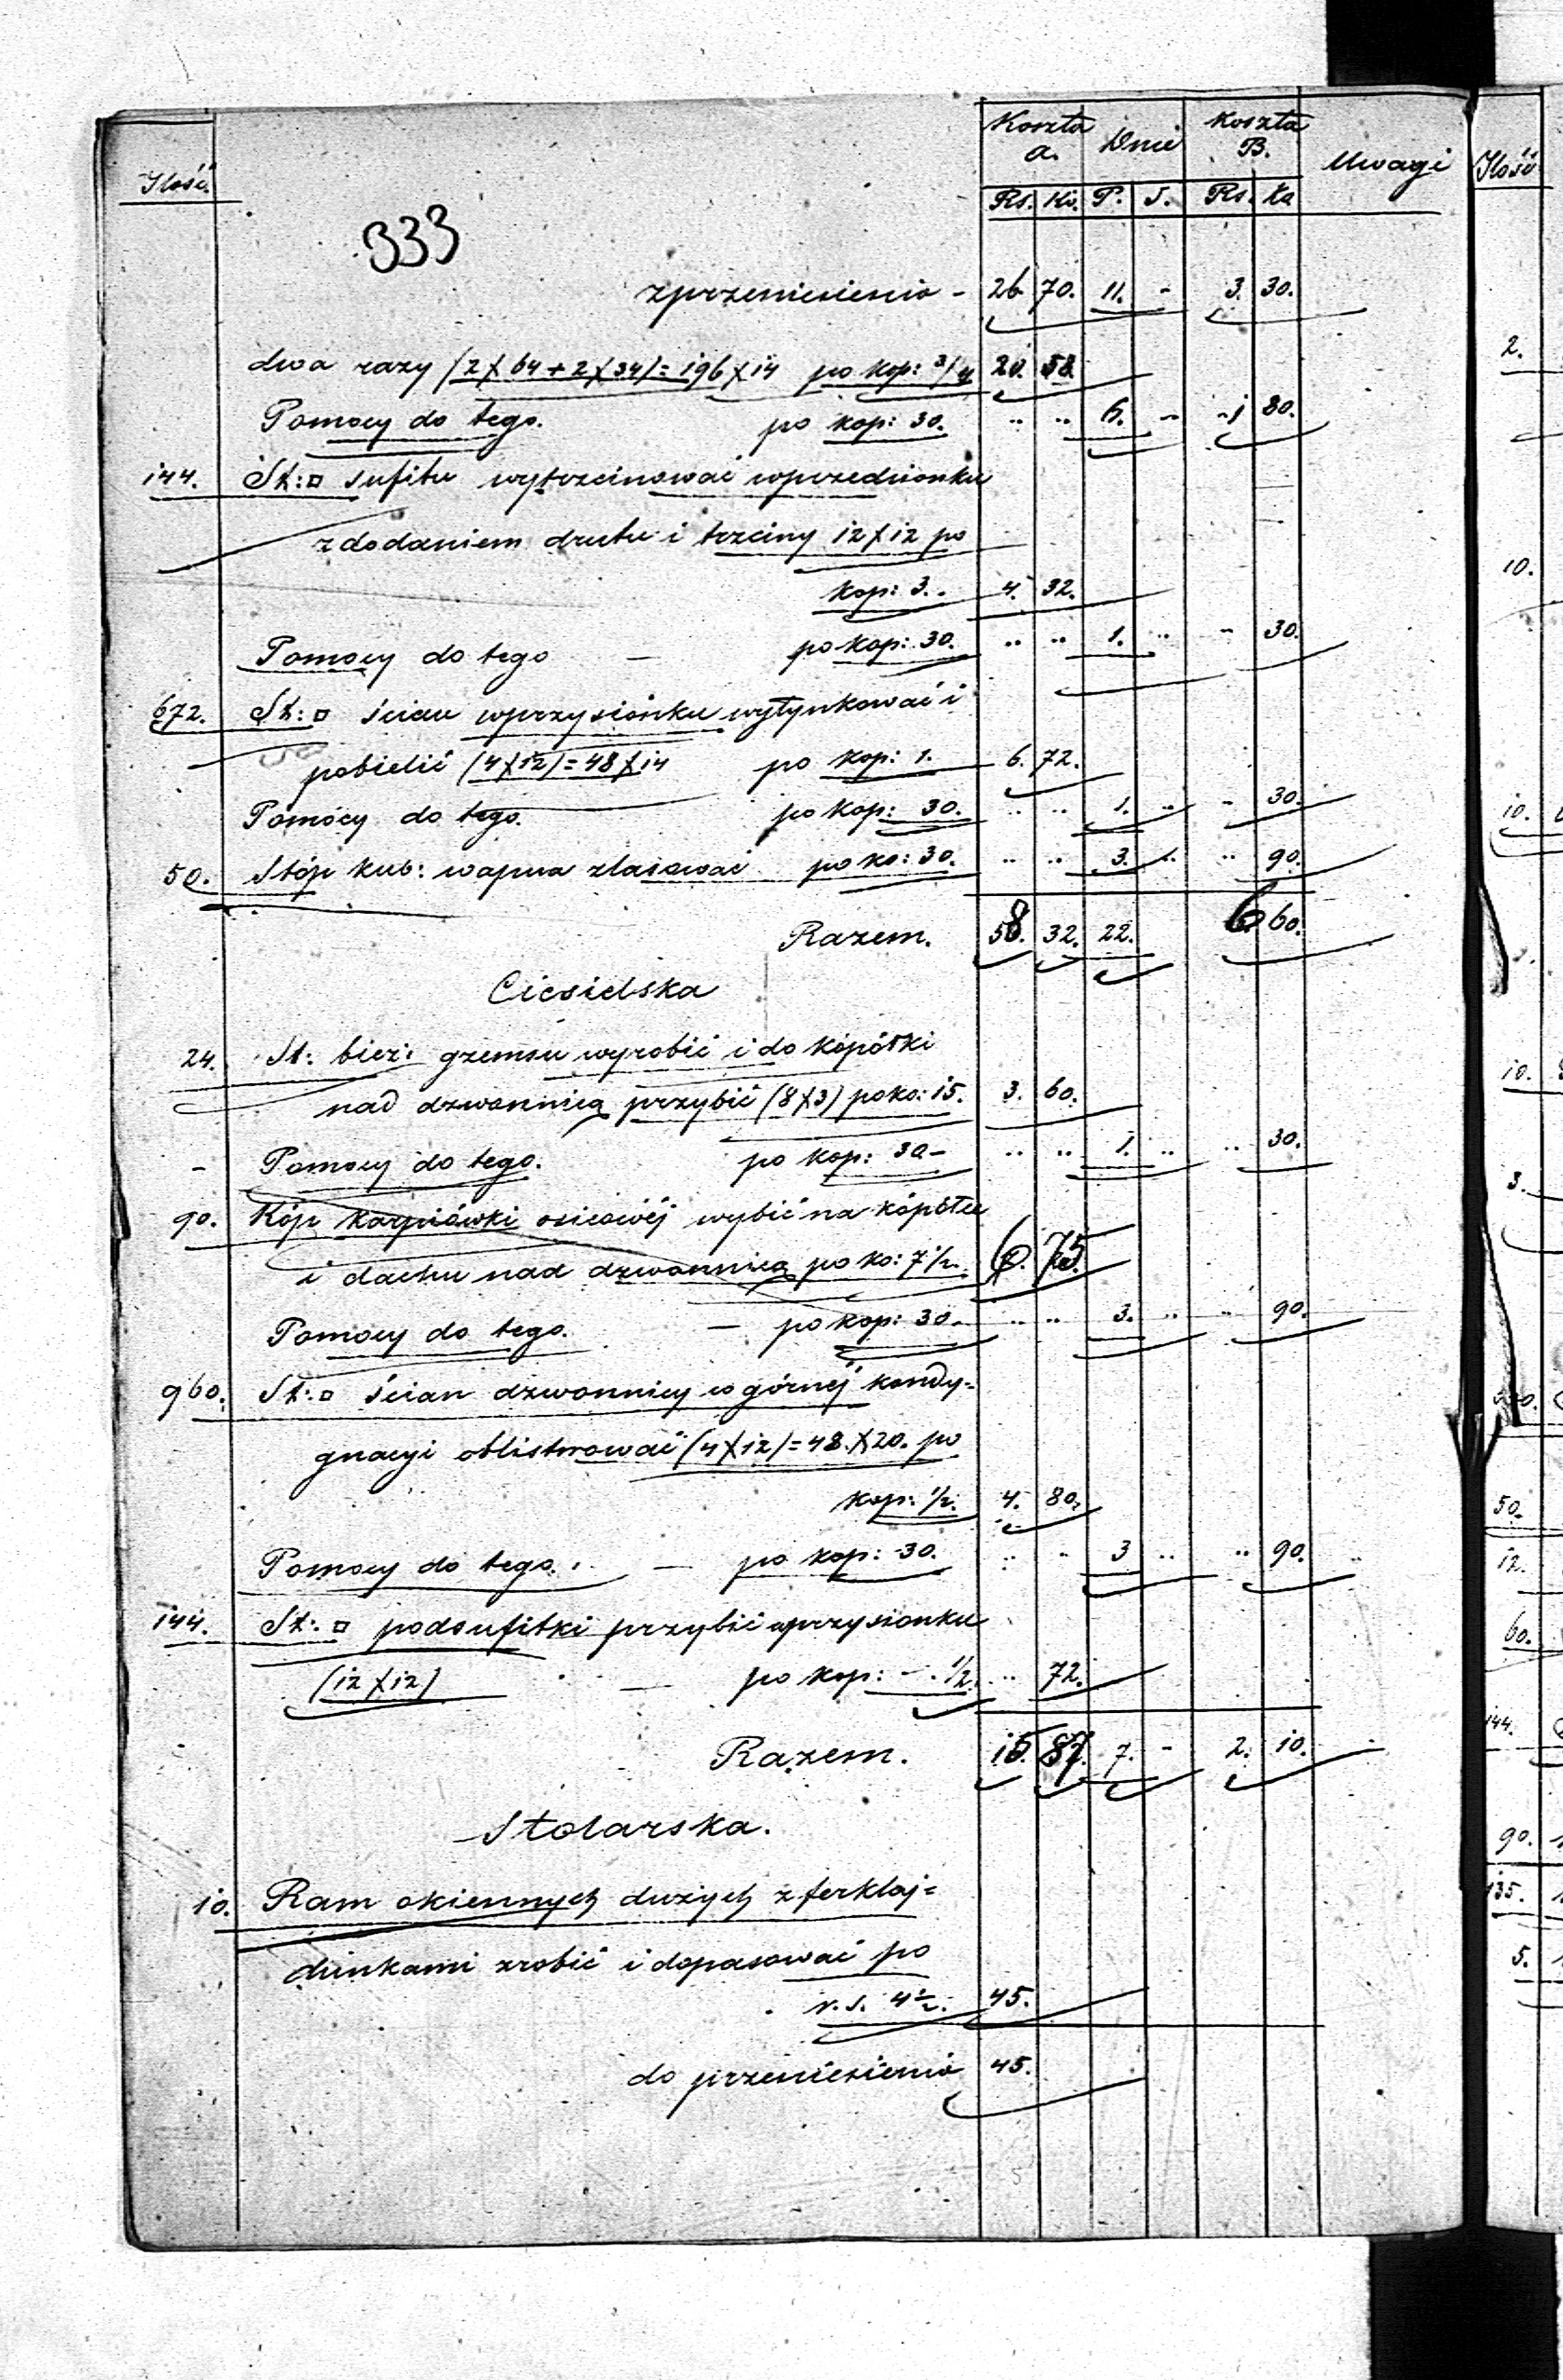 Koszta Dnie Koszta
Ilość. a. B. Uwagi Ilość
Rs. Ko. P. S. Rs. Ko
333
zprzeniesienia - 26 70. 11. - 3. 30.
dwa razy (2 X 64 + 2 X 34) = 196 X 14 po kop: 3/4 20. 58.
Pomocy do tego. po kop: 30. .. .. 6. - - 1 80.
144. St: □ sufitu wytrzcinować wprzedsionku
z dodaniem drutu i trzciny 12 X 12 po
kop: 3. - 4. 32.
Pomocy do tego — po kop: 30. .. .. 1. .. - 30.
672. St: □ ścian wprzysionku wytynkować i
pobielić (4 X 12) = 48 X 14 po kop: 1. 6. 72.
Pomocy do tego. po kop: 30. .. .. 1. .. - 30.
50. Stóp kub: wapna zlasować po ko: 30. .. .. 3. .. .. 90.
Razem. 58. 32. 22. 6 60.
Ciesielska
24. St: bież: gzemsu wyrobić i do kopółki
nad dzwonnicą przybić (8 X 3) po ko: 15. 3. 60.
- Pomocy do tego. po kop: 30 - .. .. 1. .. .. 30.
90. Kóp karpiówki osicowéj wybić na kopółce
i dachu nad dzwonnicą po ko: 7 1/2. 6. 75.
Pomocy do tego. — po kop: 30. .. .. 3. .. .. 90.
960. St: □ ścian dzwonnicy w górnéj kondy=
gnacyi oblistwować (4 X 12) = 48. X 20. po
kop: 1/2. 4. 80.
Pomocy do tego. — po kop: 30. .. .. 3 .. .. 90.
144. St: □ podsufitki przybić wprzysionku
(12 X 12) — po kop: - . 1/2. .. 72.
Razem. 15. 87. 7. - 2. 10.
Stolarska.
10. Ram okiennych dużych z ferklaj=
dunkami zrobić i dopasować po
r. s. 4 1/2. 45.
do przeniesienia 45.
2.
10.
10.
10.
3.
50.
12.
60.
144.
90.
135.
5.